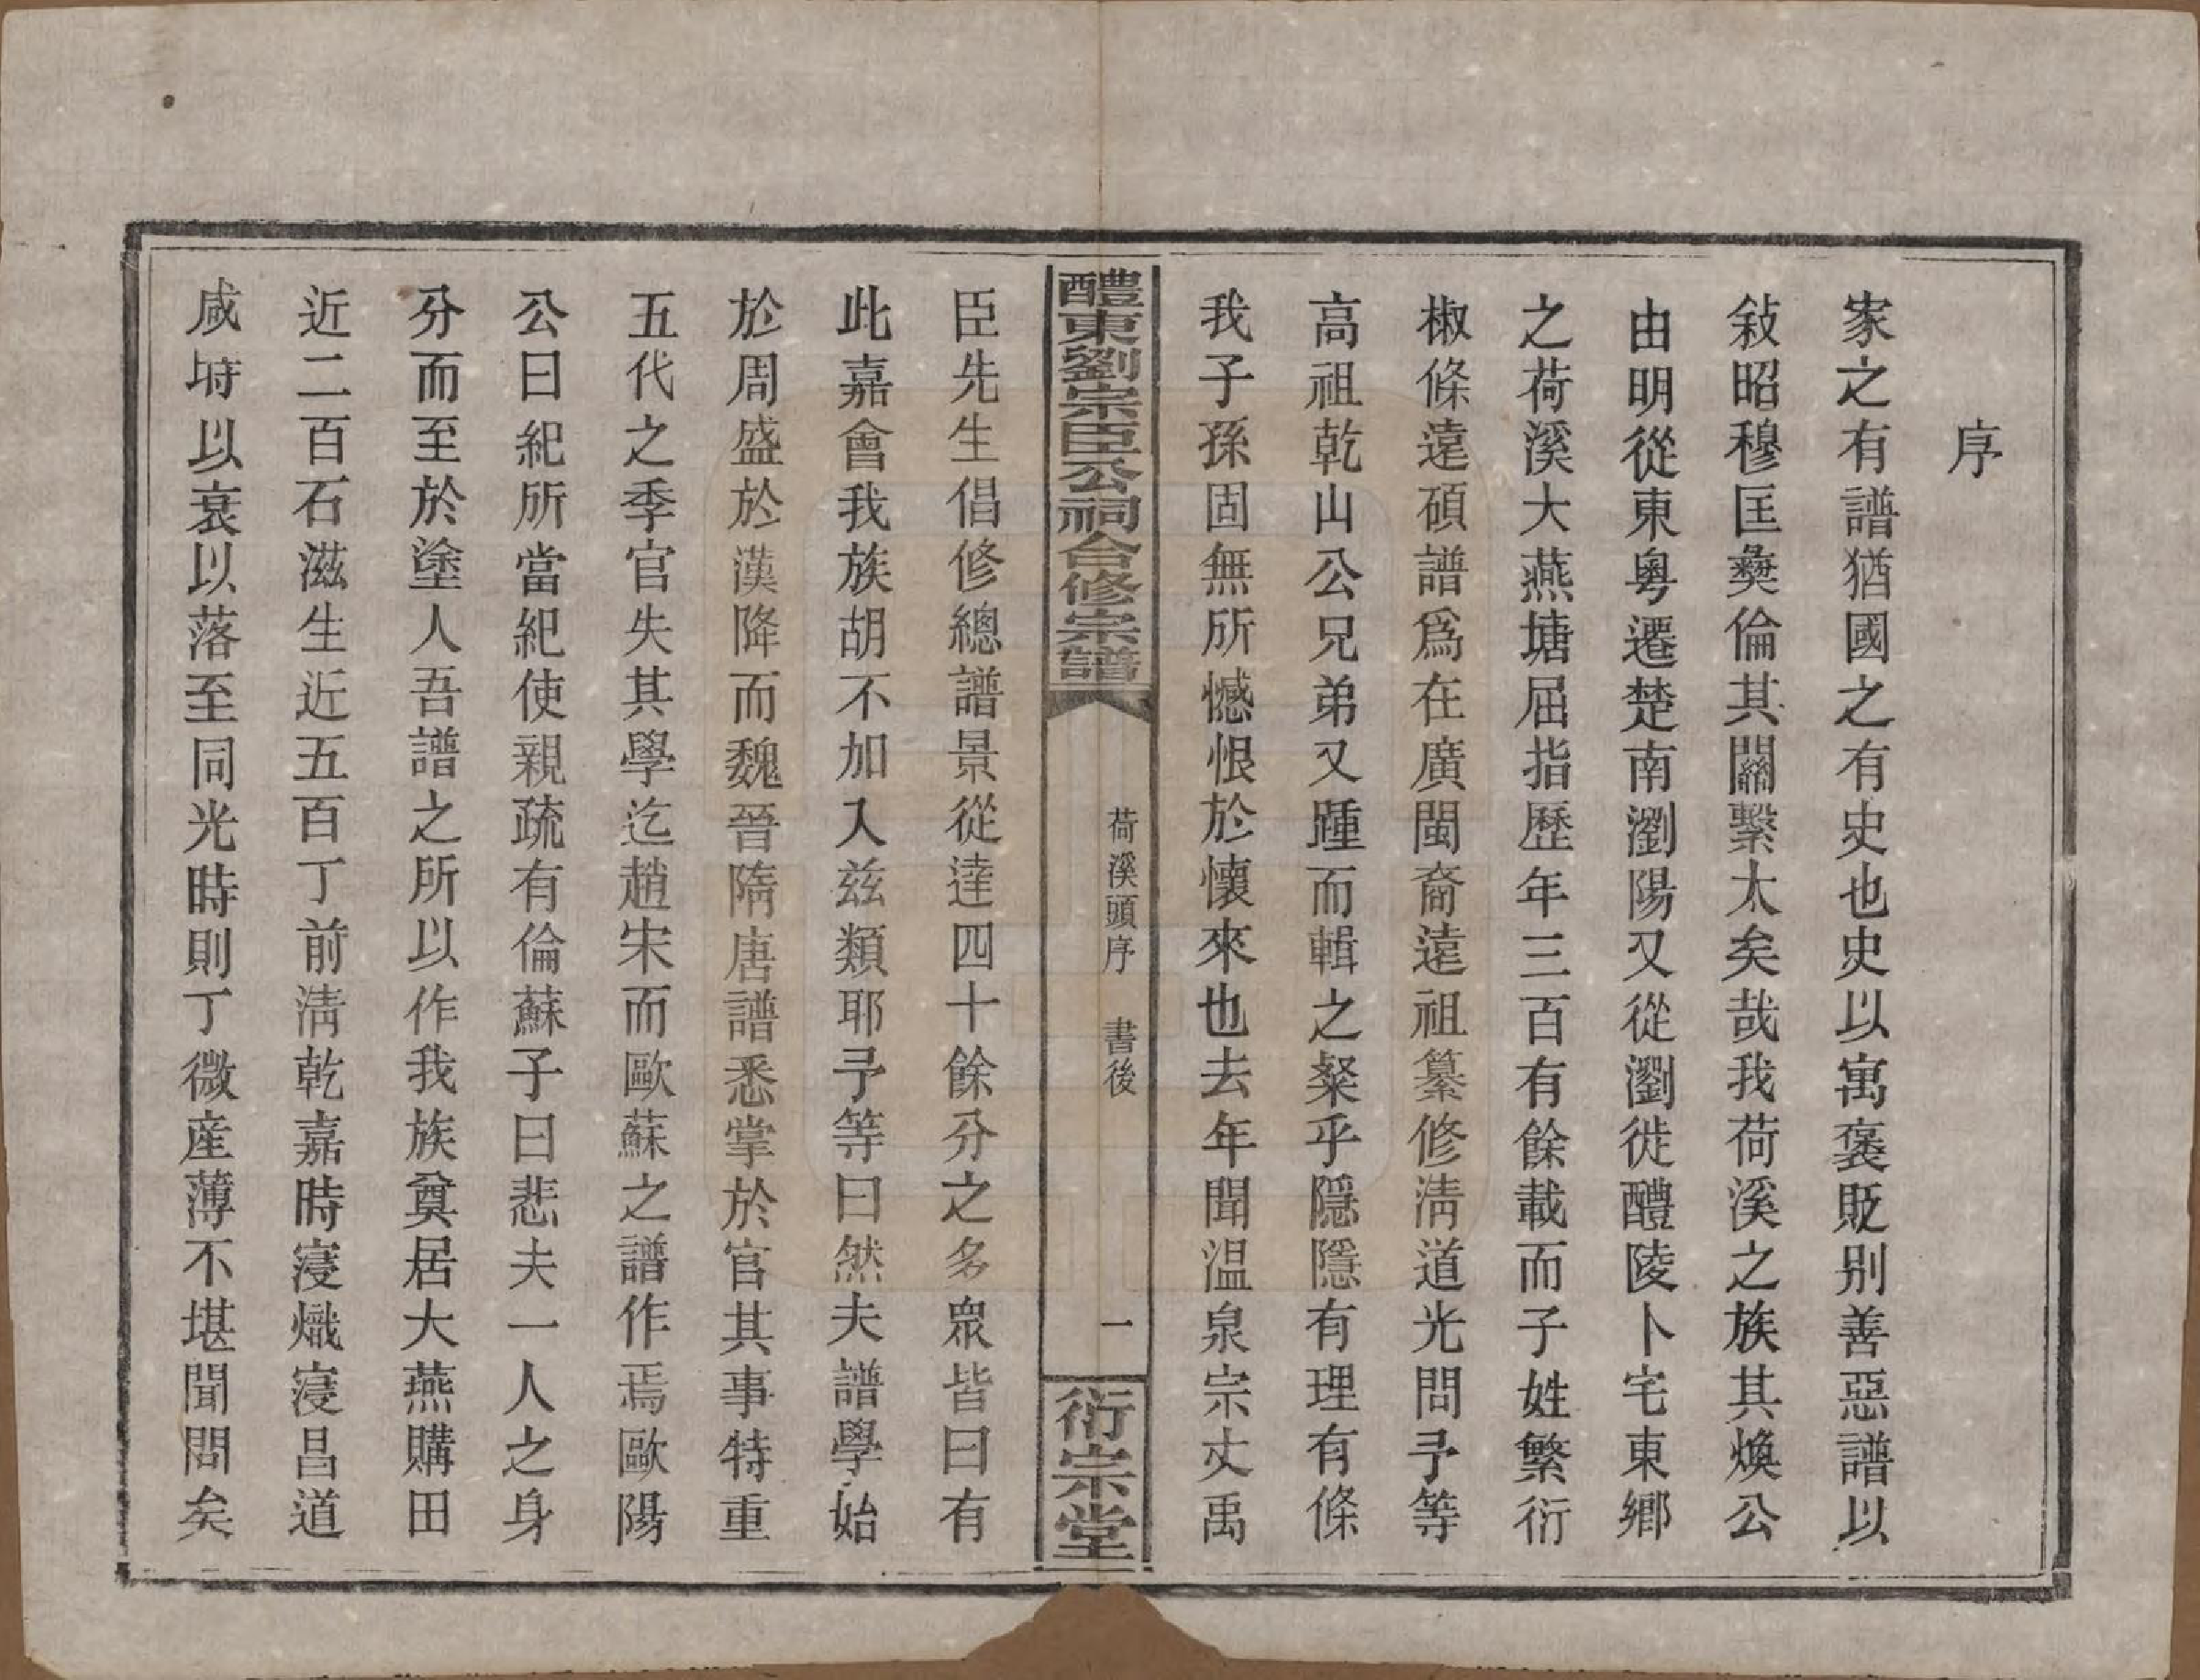 序
家之有譜猶國之有史也史以寓褒貶别善惡譜以
敍昭穆匡彝倫其關繫太矣哉我荷溪之族其煥公
由明從東粵遷楚南瀏陽又從瀏徙醴陵卜宅東鄉
之荷溪大燕塘屈指歷年三百有餘載而子姓繁衍
椒條遠碩譜爲在廣閩裔遠祖纂修淸道光問予等
高祖乾山公兄弟又踵而輯之粲乎隱隱有理有條
我子孫固無所憾恨於懷來也去年聞温泉宗丈禹
醴東劉宗臣公祠合修宗譜
荷溪頭序 書後
一
衍宗堂
臣先生倡修總譜景從達四十餘分之多衆皆曰有
此嘉會我族胡不加入兹類耶予等曰然夫譜學始
於周盛於漢降而魏晉隋唐譜悉掌於官其事特重
五代之季官失其學迄趙宋而歐蘇之譜作焉歐陽
公曰紀所當紀使親疏有倫蘇子曰悲夫一人之身
分而至於塗人吾譜之所以作我族奠居大燕購田
近二百石滋生近五百丁前淸乾嘉時寖熾寖昌道
咸時以衰以落至同光時則丁微産薄不堪聞問矣